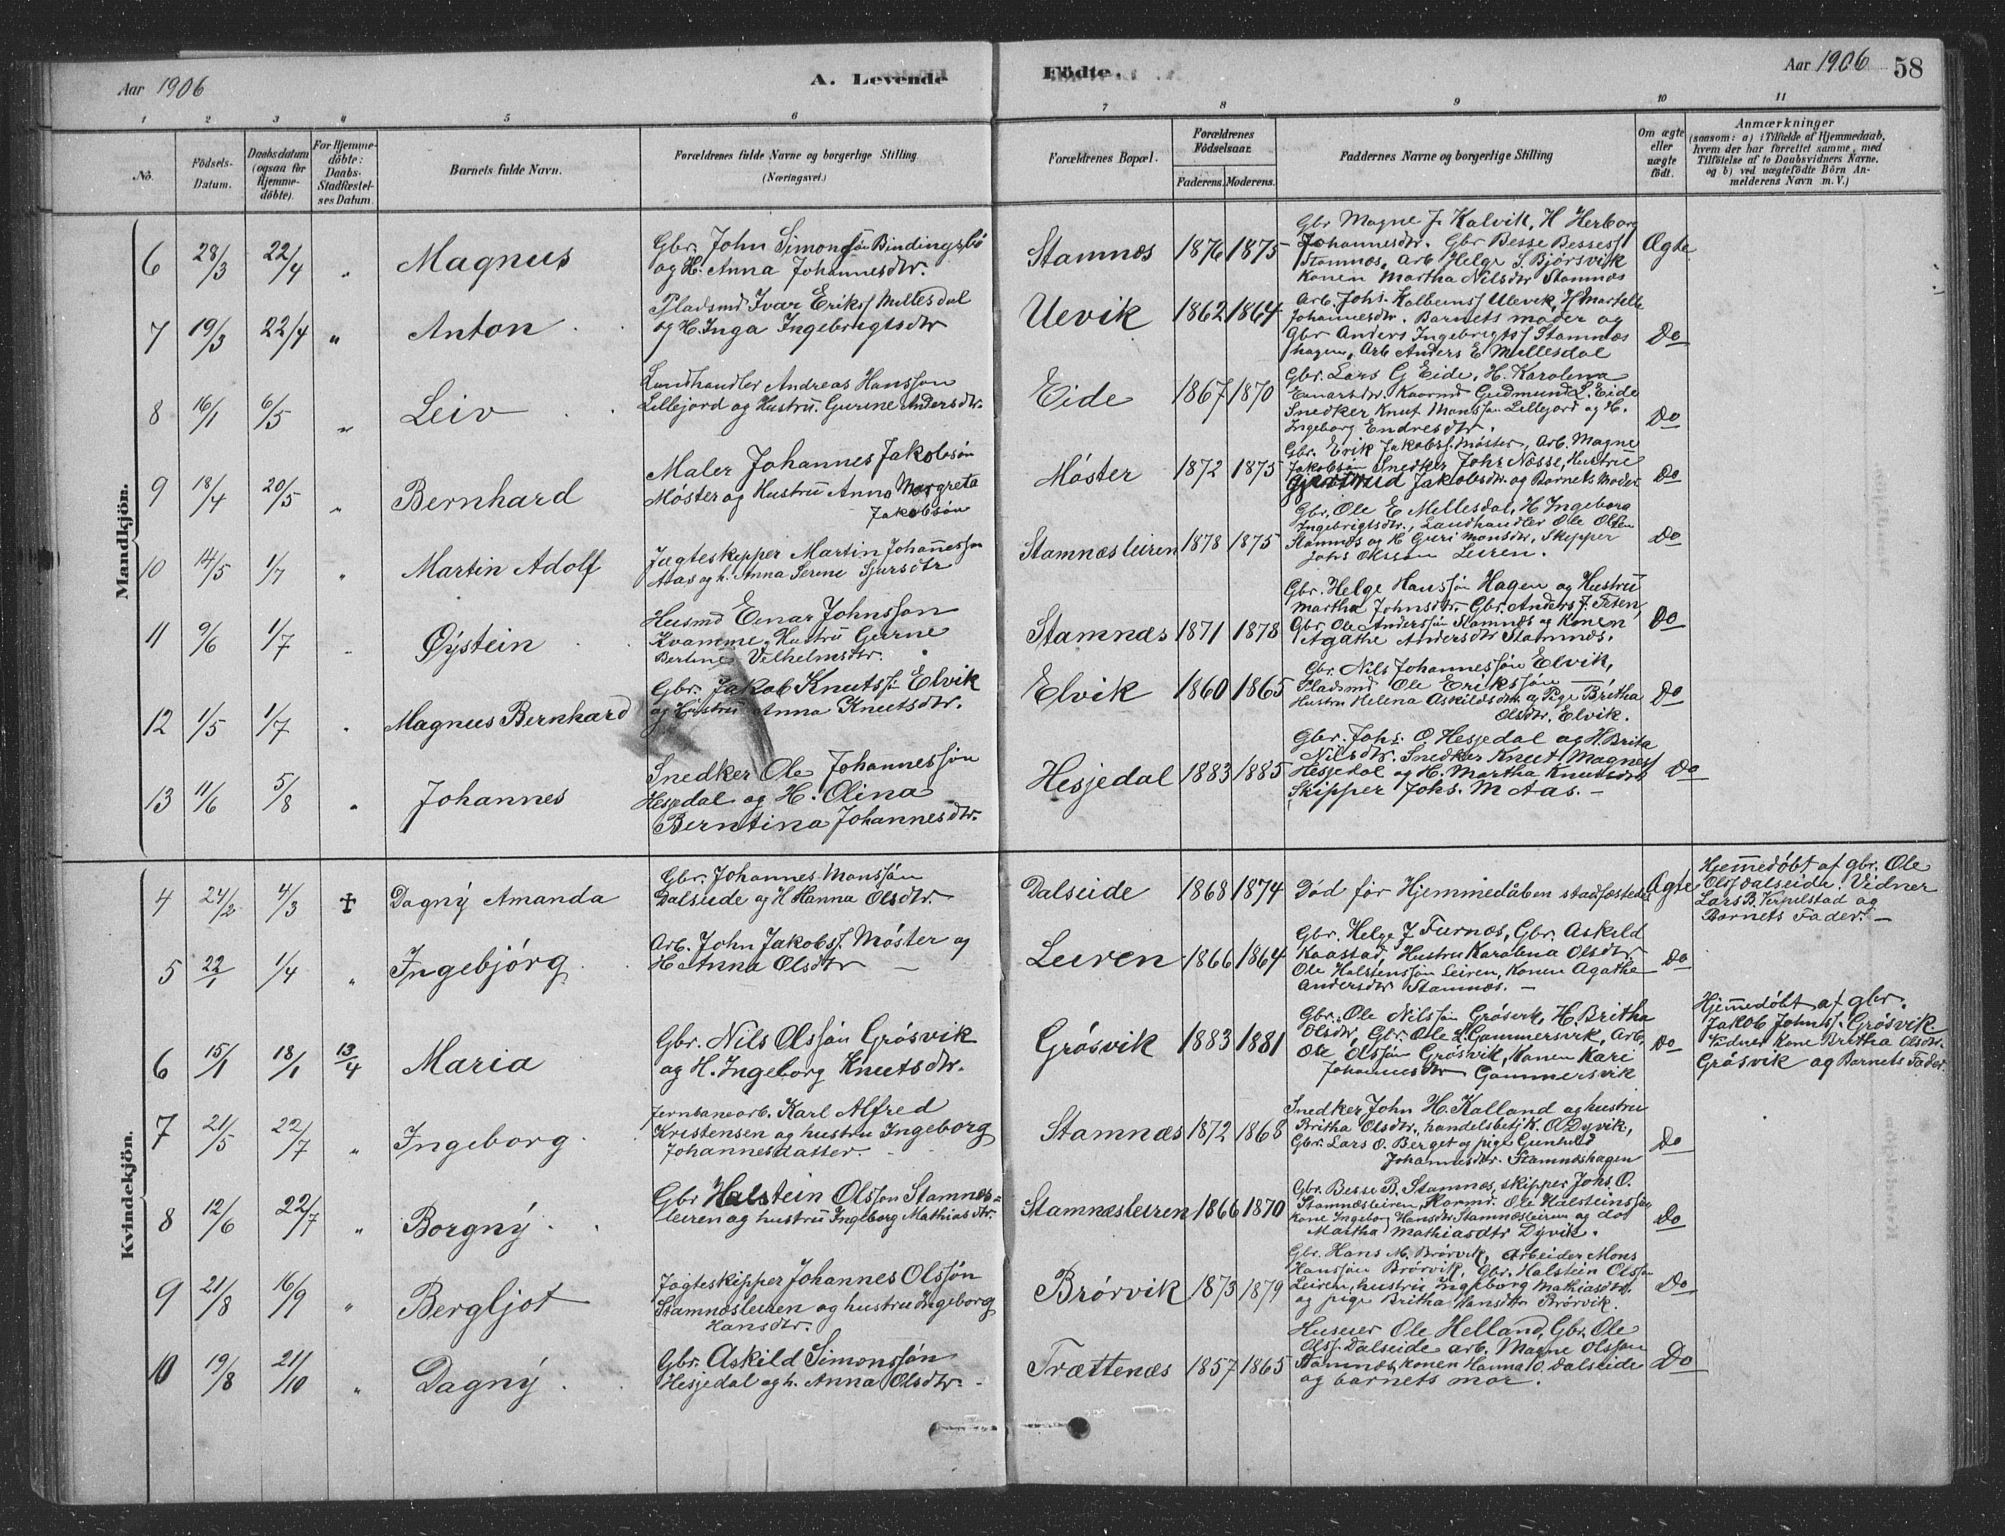 Aar 1906
A. Levende
Födte.
Aar 1906
58
1 2 3 4 5 6 7 8 9 10 11
No.
Födsels-Datum.
Daabsdatum (ogsaa for Hjemmedöbte).
For Hjemmedöbte: Daabs-Stadfæstelses Datum.
Barnets fulde Navn.
Forældrenes fulde Navne og borgerlige Stilling
(Næringsvei.)
Forældrenes Bopæl.
Forældrenes Födselsaar.
Faderens. Moderens.
Faddernes Navne og borgerlige Stilling
Om ægte eller uægte födt.
Anmærkninger
(saasom: a) i Tilfælde af Hjemmedaab, hvem der har forrettet samme, med Tilföielse af to Daabsvidners Navne, og b) ved uægtefödte Börn Anmelderens Navn m. V.)
Mandkjön.
6 28/3 22/4 " Magnus
Gbr. John Simonssøn Bindingsbø
og H. Anna Johannesdtr.
Stamnæs 1876 1875
Gbr Magne J. Kalvik, H Herborg
Johannesdtr. Gbr Besse Bessess
Stamnæs, Arb Helge S. Bjørsvik
Konen Martha Nilsdtr Stamnæs
Ægte
7 19/3 22/4 " Anton
Pladsmd Ivar Eriks. Millesdal
og H. Inga Ingebrigtsdtr
Uevik 1862 1864
Arb. Johs. Kolbeins. Ulevik, H Martelle
Johannesdtr. Barnets moder og
Gbr Anders Ingebrigts. Stamnæs
hagen, Arb Anders E Millesdal
Do
8 16/1 6/5 " Leiv
Landhandler Andreas Hanssøn
Lillejord og Hustru Gurine Andersdtr.
Eide 1867 1870
Gbr. Lars G Eide, H. Karolina
Einarsdtr. Kaarmd Gudmund L. Eide
Snedker Knut Monssøn Lillejord og H.
Ingeborg Endresdtr.
Do
9 18/4 20/5 " Bernhard
Maler Johannes Jakobsøn
Møster og Hustru Anna Margreta
Jakobsøn
Møster 1872 1875
Gbr. Erik Jakobss. Møster, Arb. Magne
Jakobsøn Snedker Johs Nesse, Hustru
Gjertrud Jakobsdtr. og Barnets Moder
Do
10 14/5 1/7 " Martin Adolf
Jægteskipper Martin Johannessøn
Aas og h. Anna Serine Sjursdtr
Stamnæsleiren 1878 1875
Gbr. Ole E Millesdal, H Ingeborg
Ingebrigtsdtr., Landhandler Ole Olsen
Stamnæs og H Guri Monsdtr, Skipper
Johs Olssøn Leiren.
Do
11 9/6 1/7 Øystein
Husmd Einar Johnssøn
Kvamme, Hustru Gurine
Berline Vilhelmsdtr.
Stamnæs 1871 1878
Gbr. Helge Hanssøn Hagen og Hustru
Martha Johnsdtr. Gbr. Anders J. Teten,
Gbr Ole Anderssøn Stamnæs og Konen
Agathe Andersdtr Stamnæs.
Do
12 1/5 1/7 " Magnus Bernhard
Gbr. Jakob Knutss. Elvik
og Hustru Anna Knutsdtr.
Elvik 1860 1865
Gbr. Nils Johannessøn Elvik,
Pladsmd Ole Erikssøn
Hustru Helena Askildsdtr. og Pige Britha
Olsdtr. Elvik.
Do
13 11/6 5/8 " Johannes
Snedker Ole Johannessøn
Hesjedal og H. Olina
Berntina Johannesdtr.
Hesjedal 1883 1885
Gbr. Johs. O Hesjedal og H. Brita
Nilsdtr. Snedker Knut Magness
Hesjedal og H. Martha Knutsdtr
Skipper Johs. M Aas.
Do
Kvindekjön.
4 24/2 4/3 ‡ Dagny Amanda
Gbr. Johannes Monssøn
Dalseide og H Hanna Olsdtr
Dalseide 1868 1874
Død før Hjemmedåben stadfæstedes
Ægte
Hjemmedøbt af gbr. Ole
Ols Dalseide. Vidner
Lars B. Verpelstad og
Barnets Fader.
5 22/1 1/4 " Ingebjørg
Arb. John Jakobs. Møster og
H Anna Olsdtr
Leiren 1866 1864
Gbr. Helge J Furnes, Gbr. Askild
Kaastad, Hustru Karolina Olsdtr
Ole Halstenssøn Leiren, Konen Agathe
Andersdtr Stamnæs.
Do
6 15/1 18/1 13/4 Maria
Gbr. Nils Olssøn Grøsvik
og H. Ingeborg Knutsdtr.
Grøsvik 1883 1881
Gbr. Ole Nilssøn Grøsvik, H. Britha
Olsdtr, Gbr. Ole L. Gammersvik, Arb.
Ole Olssøn Grøsvik, Konen Kari
Johannesdtr Gammersvik
Do
Hjemmedøbt af gbr.
Jakob Johns. Grøsvik
Vidner Kone Britha Olsdtr.
Grøsvik og Barnets Fader.
7 21/5 22/7 " Ingeborg
Jernbanearb. Karl Alfred
Kristensen og hustru Ingeborg
Johannesdatter.
Stamnæs 1872 1868
Snedker John H. Kalland og hustru
Britha Olsdtr, handelsbetj K. O. Dyvik,
Gbr. Lars O. Berget og pige Gunhild
Johannesdtr. Stamnæshagen
Do
8 12/6 22/7 " Borgny
Gbr Halstein Olssøn Stamnes-
leiren og hustru Ingeborg Mathiasdtr.
Stamnesleiren 1866 1870
Gbr. Besse B. Stamnæs, skipper Johs. O.
Stamnæsleiren, Kormd. Ole Halsteinssøn
kone Ingeborg Hansdtr Stamnæsleiren og do
Martha Mathiasdtr Dyvik.
Do
9 21/8 16/9 " Bergljot
Jægteskipper Johannes Olssøn
Stamnæsleiren og hustru Ingeborg
Hansdtr.
Brørvik 1873 1879
Gbr. Hans M. Brørvik, Arbeider Mons
Hanssøn Brørvik, Gbr. Halstein Olssøn
Leiren, hustru Ingeborg Mathiasdtr,
og pige Britha Hansdtr Brørvik.
Do
10 19/8 21/10 " Dagny
Gbr. Askild Simonssøn
Hesjedal og h. Anna Olsdtr.
Trættenæs 1857 1865
Huseier Ole Helland, Gbr. Ole
Olss. Dalseide arb. Magne Olssøn
Stamnæs, konen Hanna O. Dalseide
og barnets mor.
Do